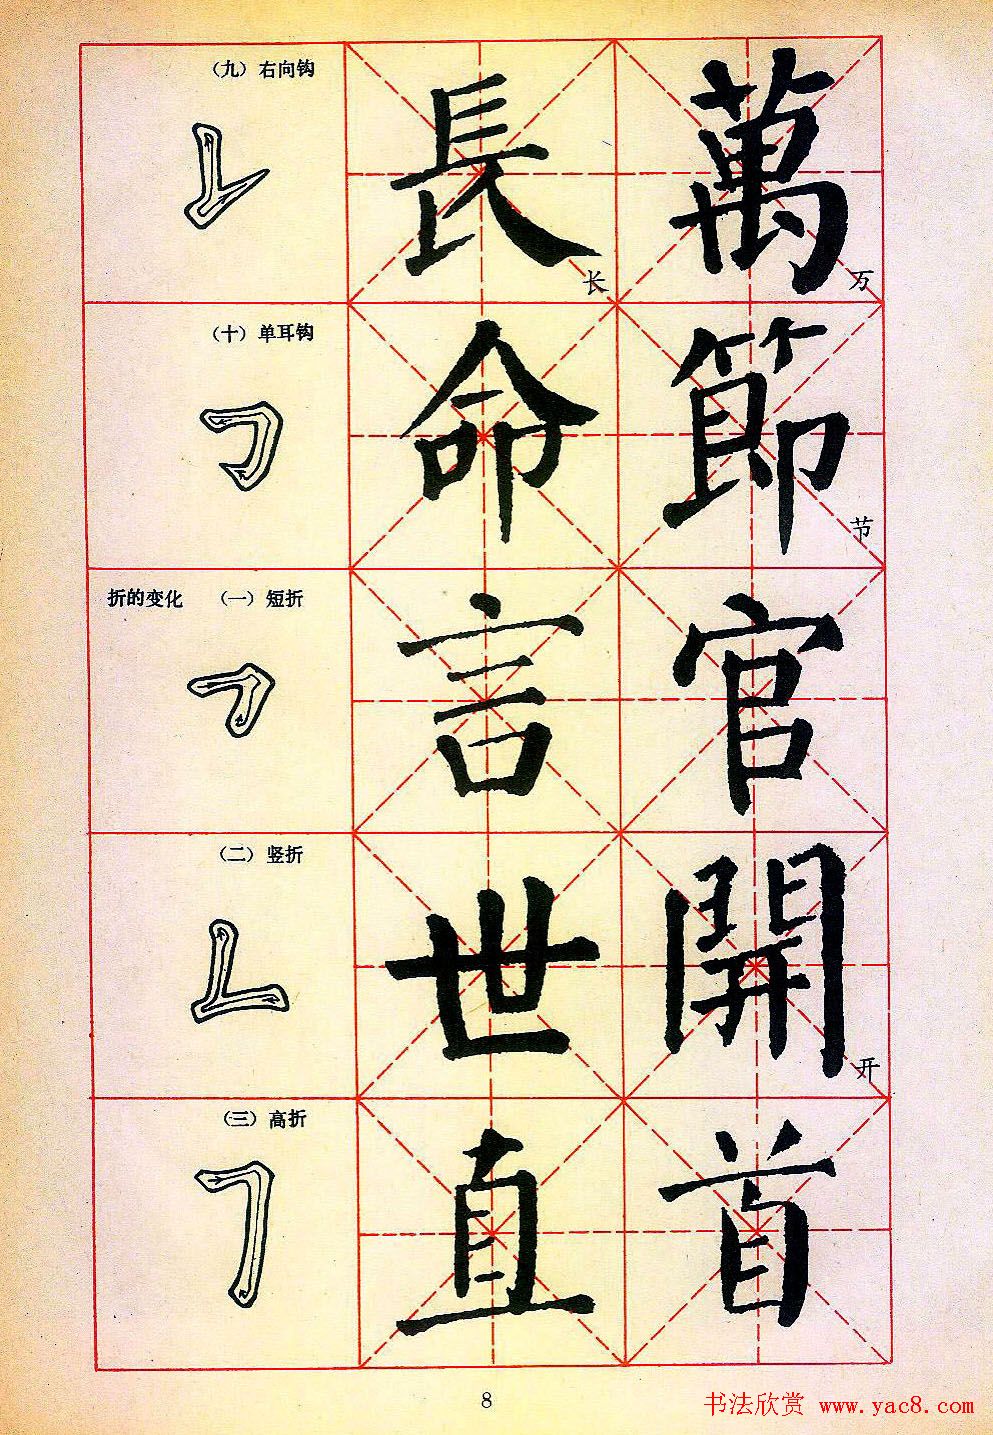 （九）右向钩
長
长
萬
万
（十）单耳钩
命
節
节
折的变化 （一）短折
言
官
（二）竖折
世
開
开
（三）高折
直
首
8
书法欣赏 www.yac8.com